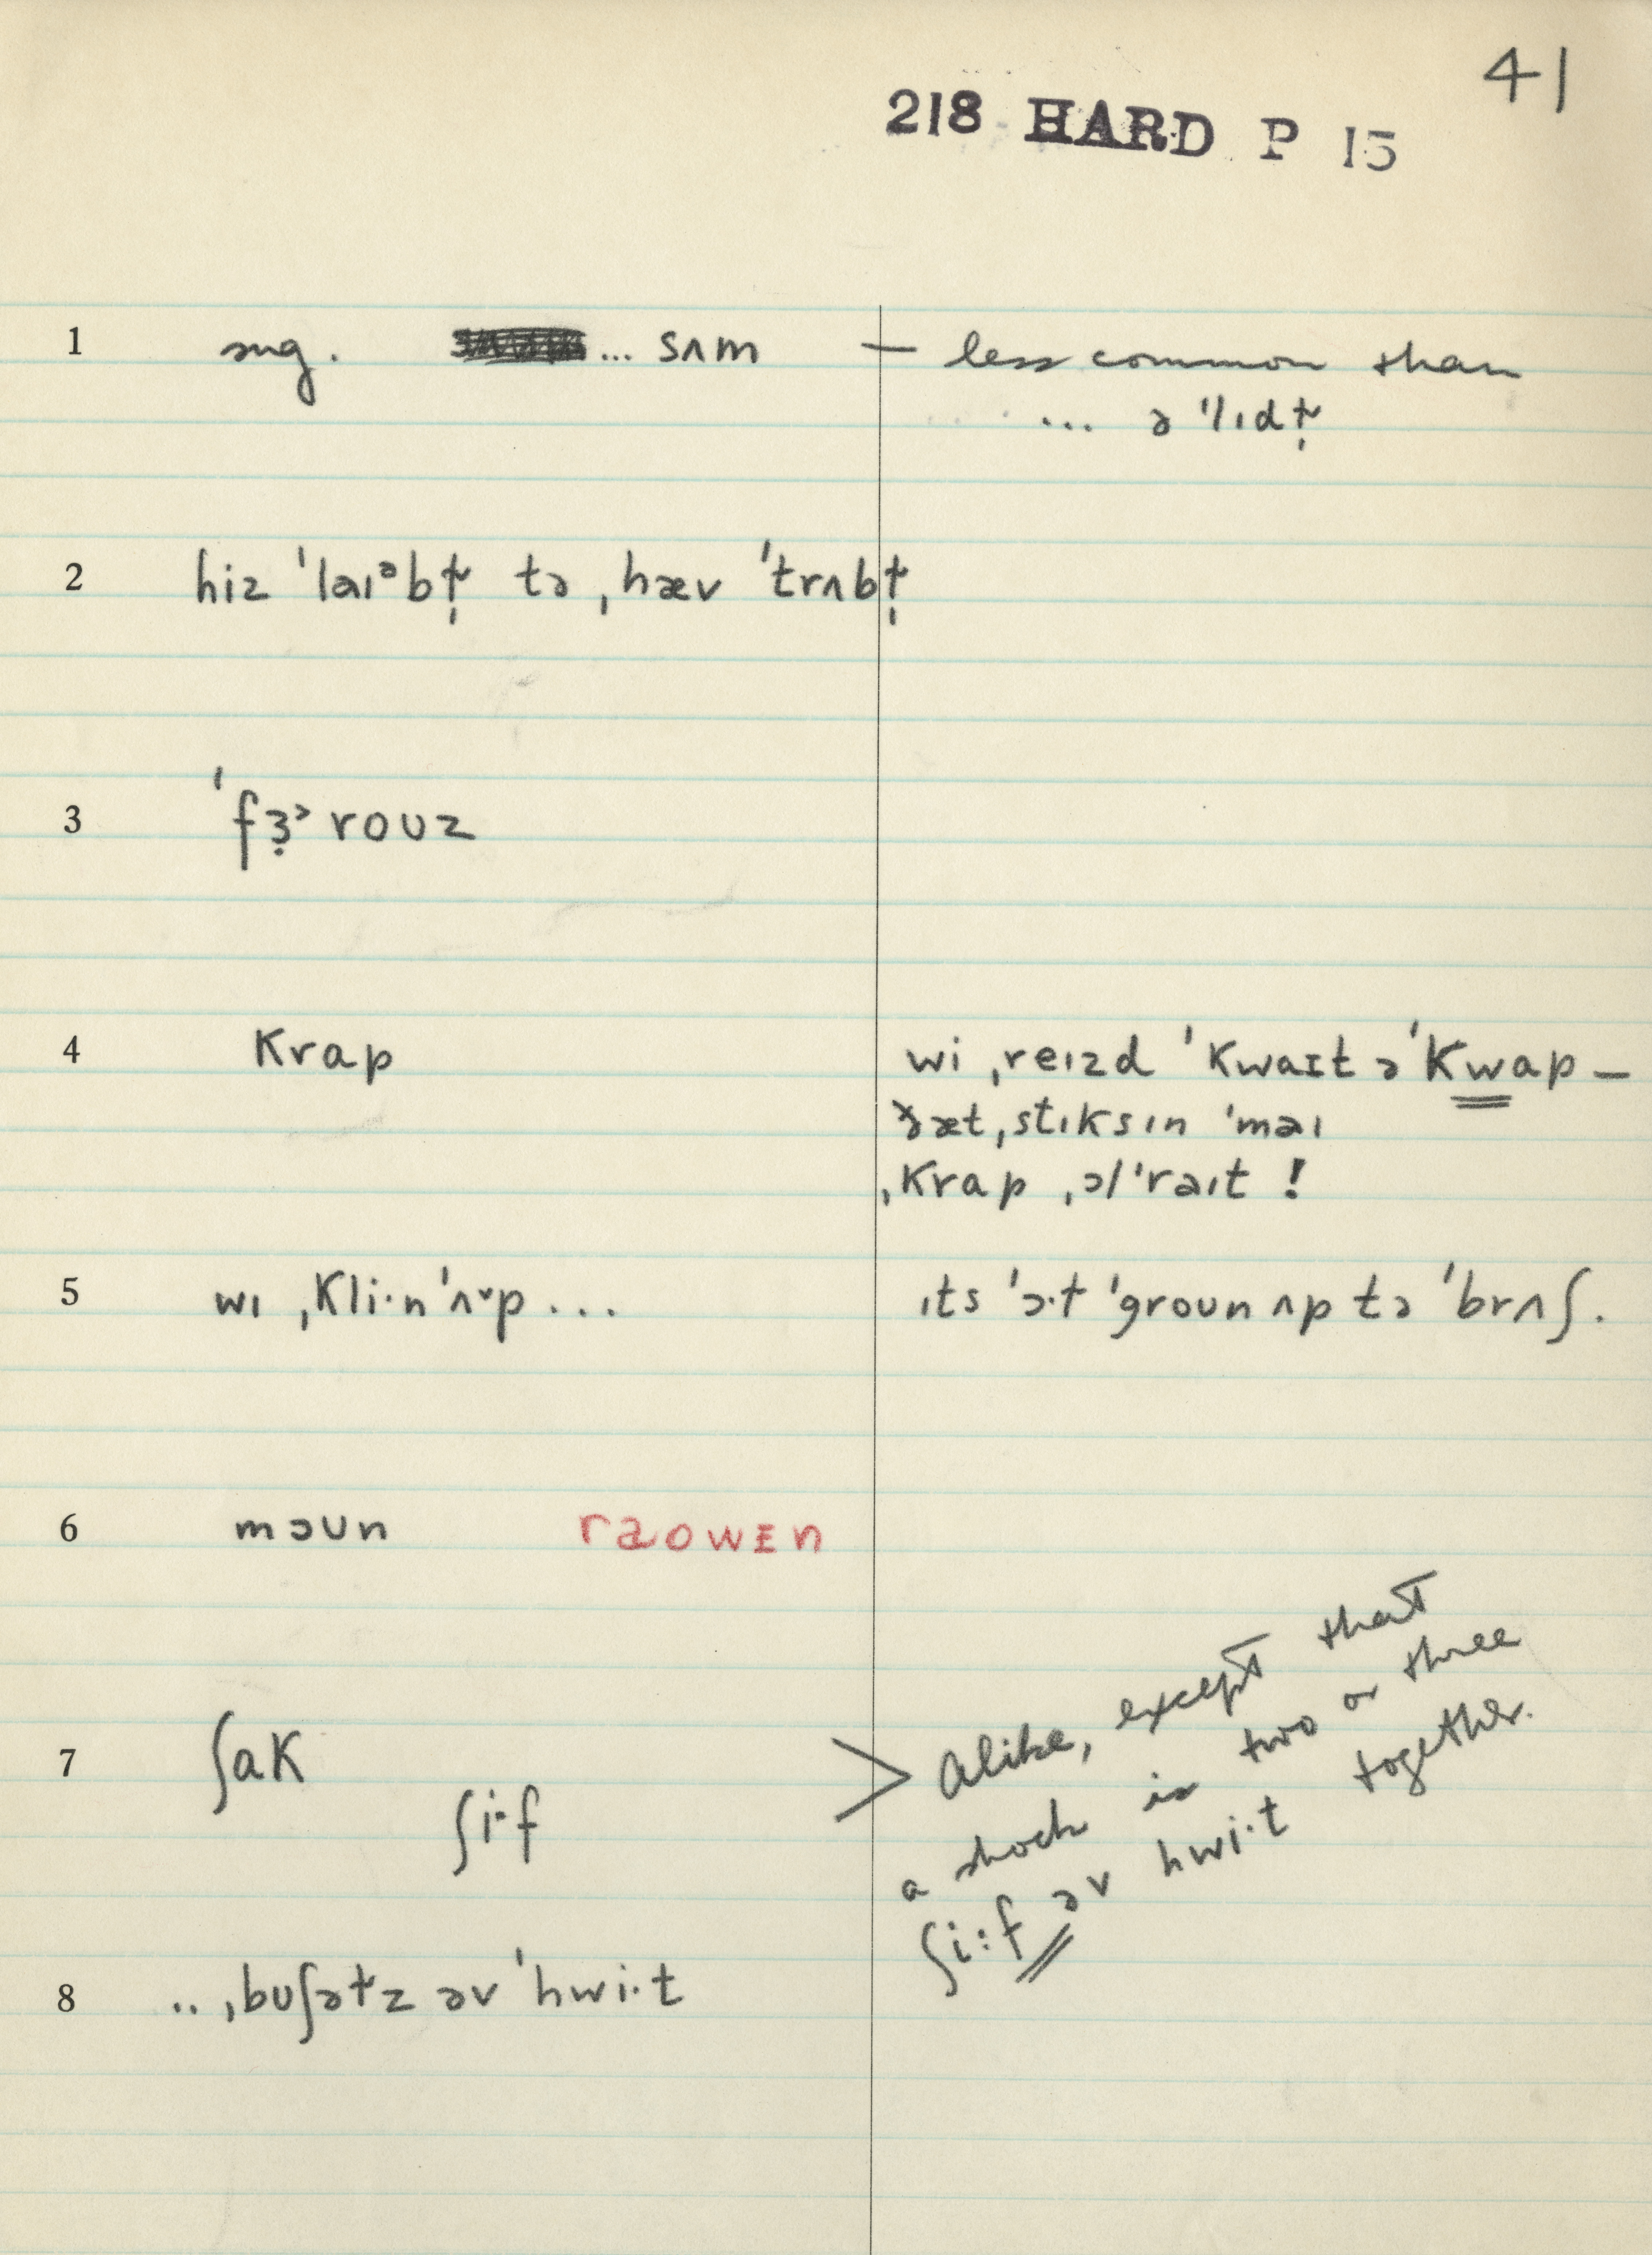 41
218 HARD P 15
1 sug. ... sʌm — less common than
... ə ˈlɪdɫ̩
2 hiz ˈlaɪᵊbɫ̩ tə ˌhæv ˈtrʌbɫ̩
3 ˈfɜ̣˞rouz
4 krap wi ˌreɪzd ˈkwaɪt əˈkwap –
ðæt ˌstɪks ɪn ˈmaɪ
ˌkrap ˌɔlˈraɪt !
5 wɪ ˌkli·nˈʌᵛp ... ɪts ˈɔ·t ˈgroun ʌp tə ˈbrʌʃ.
6 mɔʊn raowɪn
7 ʃak > Alike, except that
ʃi·f a shock is two or three
ʃi:f əv hwi·t together.
8 .. ˌbuʃəɫz əv ˈhwi·t